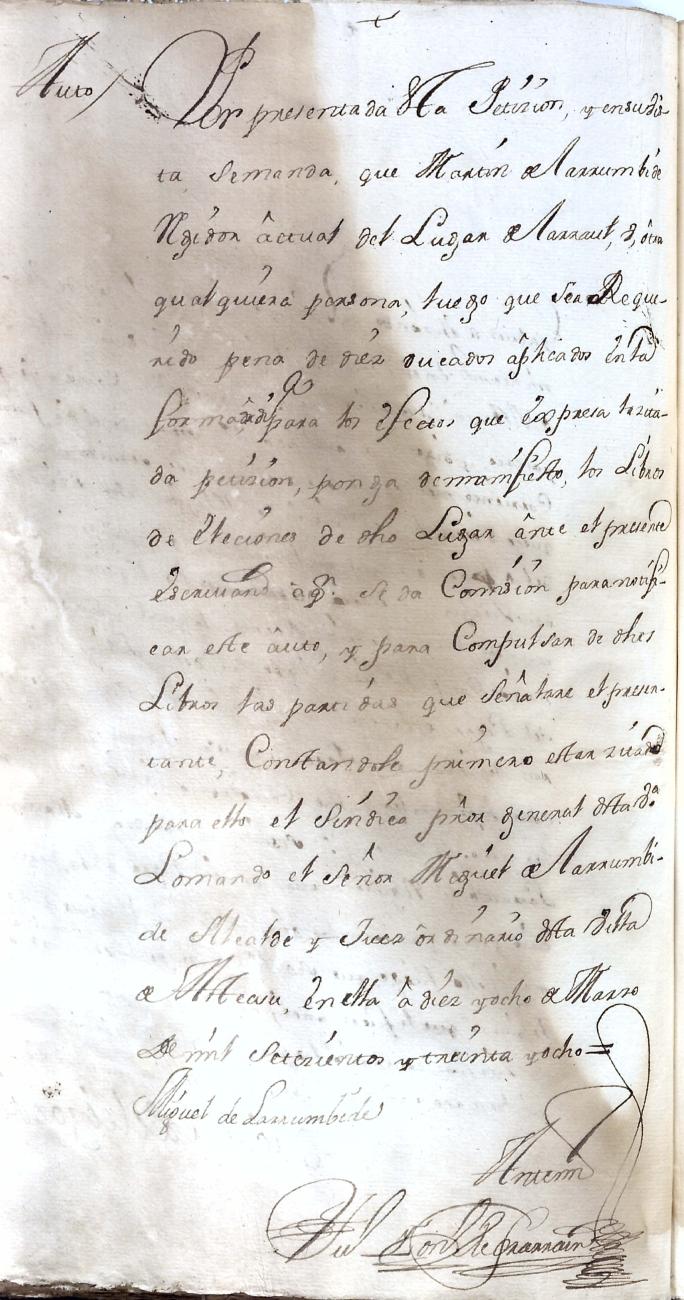 Auto / Por presentada esta Petizion, y en su bis-
ta semanda, que Martin de Larrumbide
Rejidor âctual del Lugar de Larraul, ô, ôtra
qualquiera persona, luego que sea Reque-
rido pena de diez ducados âplicados en la
forma para los efectos que expresa la zita-
da petizion, ponga demanifiesto, los Libros
de Eleciones de dho Lugar ânte el presente
escrivano aq.n se da Comision para notifi-
car este âuto, y para Compulsar de dhos
Libros las partidas que señalare el presen-
tante, Constandole primero estar zitado
para ello el Sindico prôr general dsta Va
Lo mando el Señor Miguel de Larrumbi-
de Alcalde y Juez ôrdinario dsta Villa
de Asteasu, en ella â diez y ocho de Marzo
de mil setezientos y treinta y ocho =
Miguel de Larrumbide
Antemi